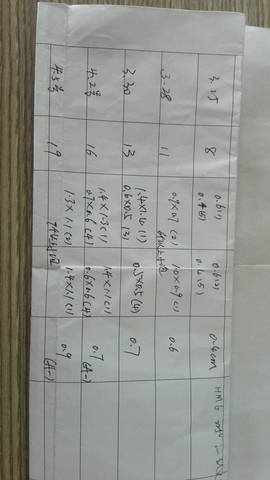 3.25 8 0.6(1) 0.6(2) 0.4cm HMG
0.4(5) 0.4(5)
3.28 11 0.9×0.7(2) 1.0×0.9(1) 0.6
3.30 13 1.4×1.0(1) 0.5×0.5(4) 0.7
0.6×0.5(3)
4.2号 16 1.4×1.3(1) 1.4×1.1(1) 0.7 (A-)
0.7×0.6(4) 0.6×0.6(4)
4.5号 19 1.3×1.1(2) 1.4×1.1(1) 0.9 (A-)